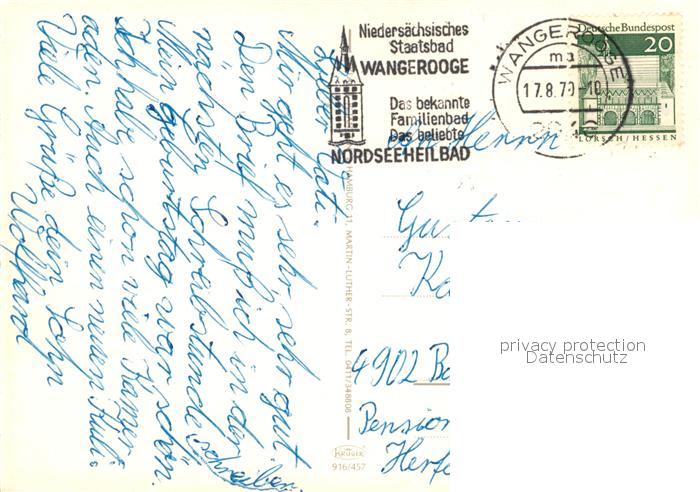 Lieber Vati.
Mir geht es sehr, sehr gut
Den Brief muß ich in der
nächsten Schreibstunde schreiben.
Mein Geburtstag war schön.
Ich hab schon viele Kamer-
aden. Auch einen neuen Kuli
Viele Grüße dein Sohn
Wolfhard
HAMBURG 11, MARTIN-LUTHER-STR. 8, TEL. 0411/348606
KRÜGER
916/457
Niedersächsisches
Staatsbad
WANGEROOGE
Das bekannte
Familienbad
Das beliebte
NORDSEEHEILBAD
WANGEROOGE
ma
17.8.70-10
Deutsche Bundespost
20
LORSCH/HESSEN
Herrn
4902 Ba
Pension
Herfo
privacy protection
Datenschutz